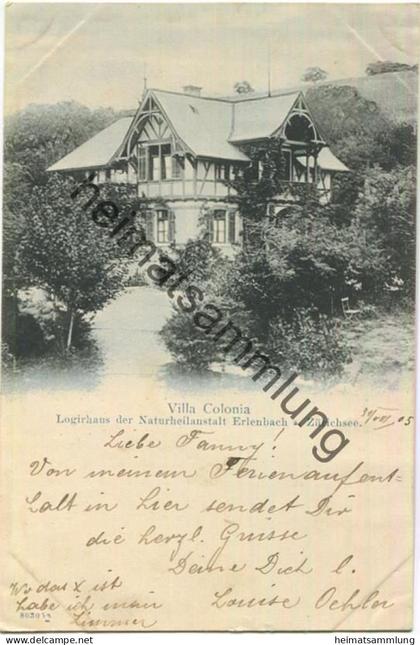 Villa Colonia
Logirhaus der Naturheilanstalt Erlenbach a. Zürichsee.
31/VIII 05
Liebe Fanny!
Von meinem Ferienaufent=
halt in hier sendet Dir
die herzl. Grüsse
Deine Dich l.
Louise Oehler
Wo das X ist
habe ich mein
Zimmer
heimatsammlung.com
heimatsammlung.com